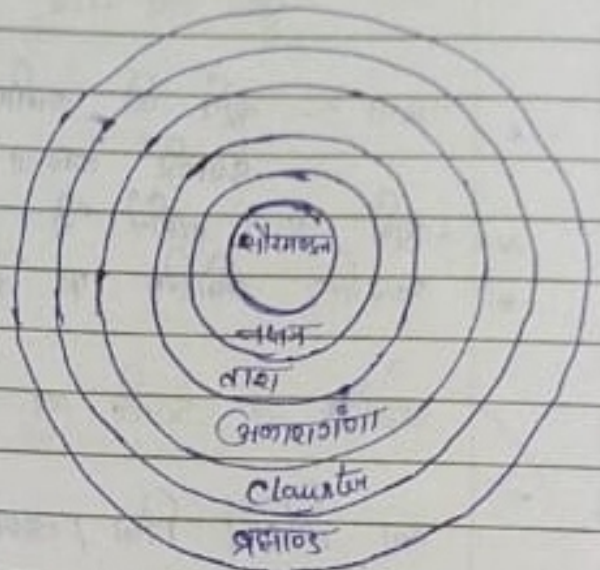 सौरमण्डल
नक्षत्र
तारा
आकाशगंगा
Clauster
ब्रह्माण्ड